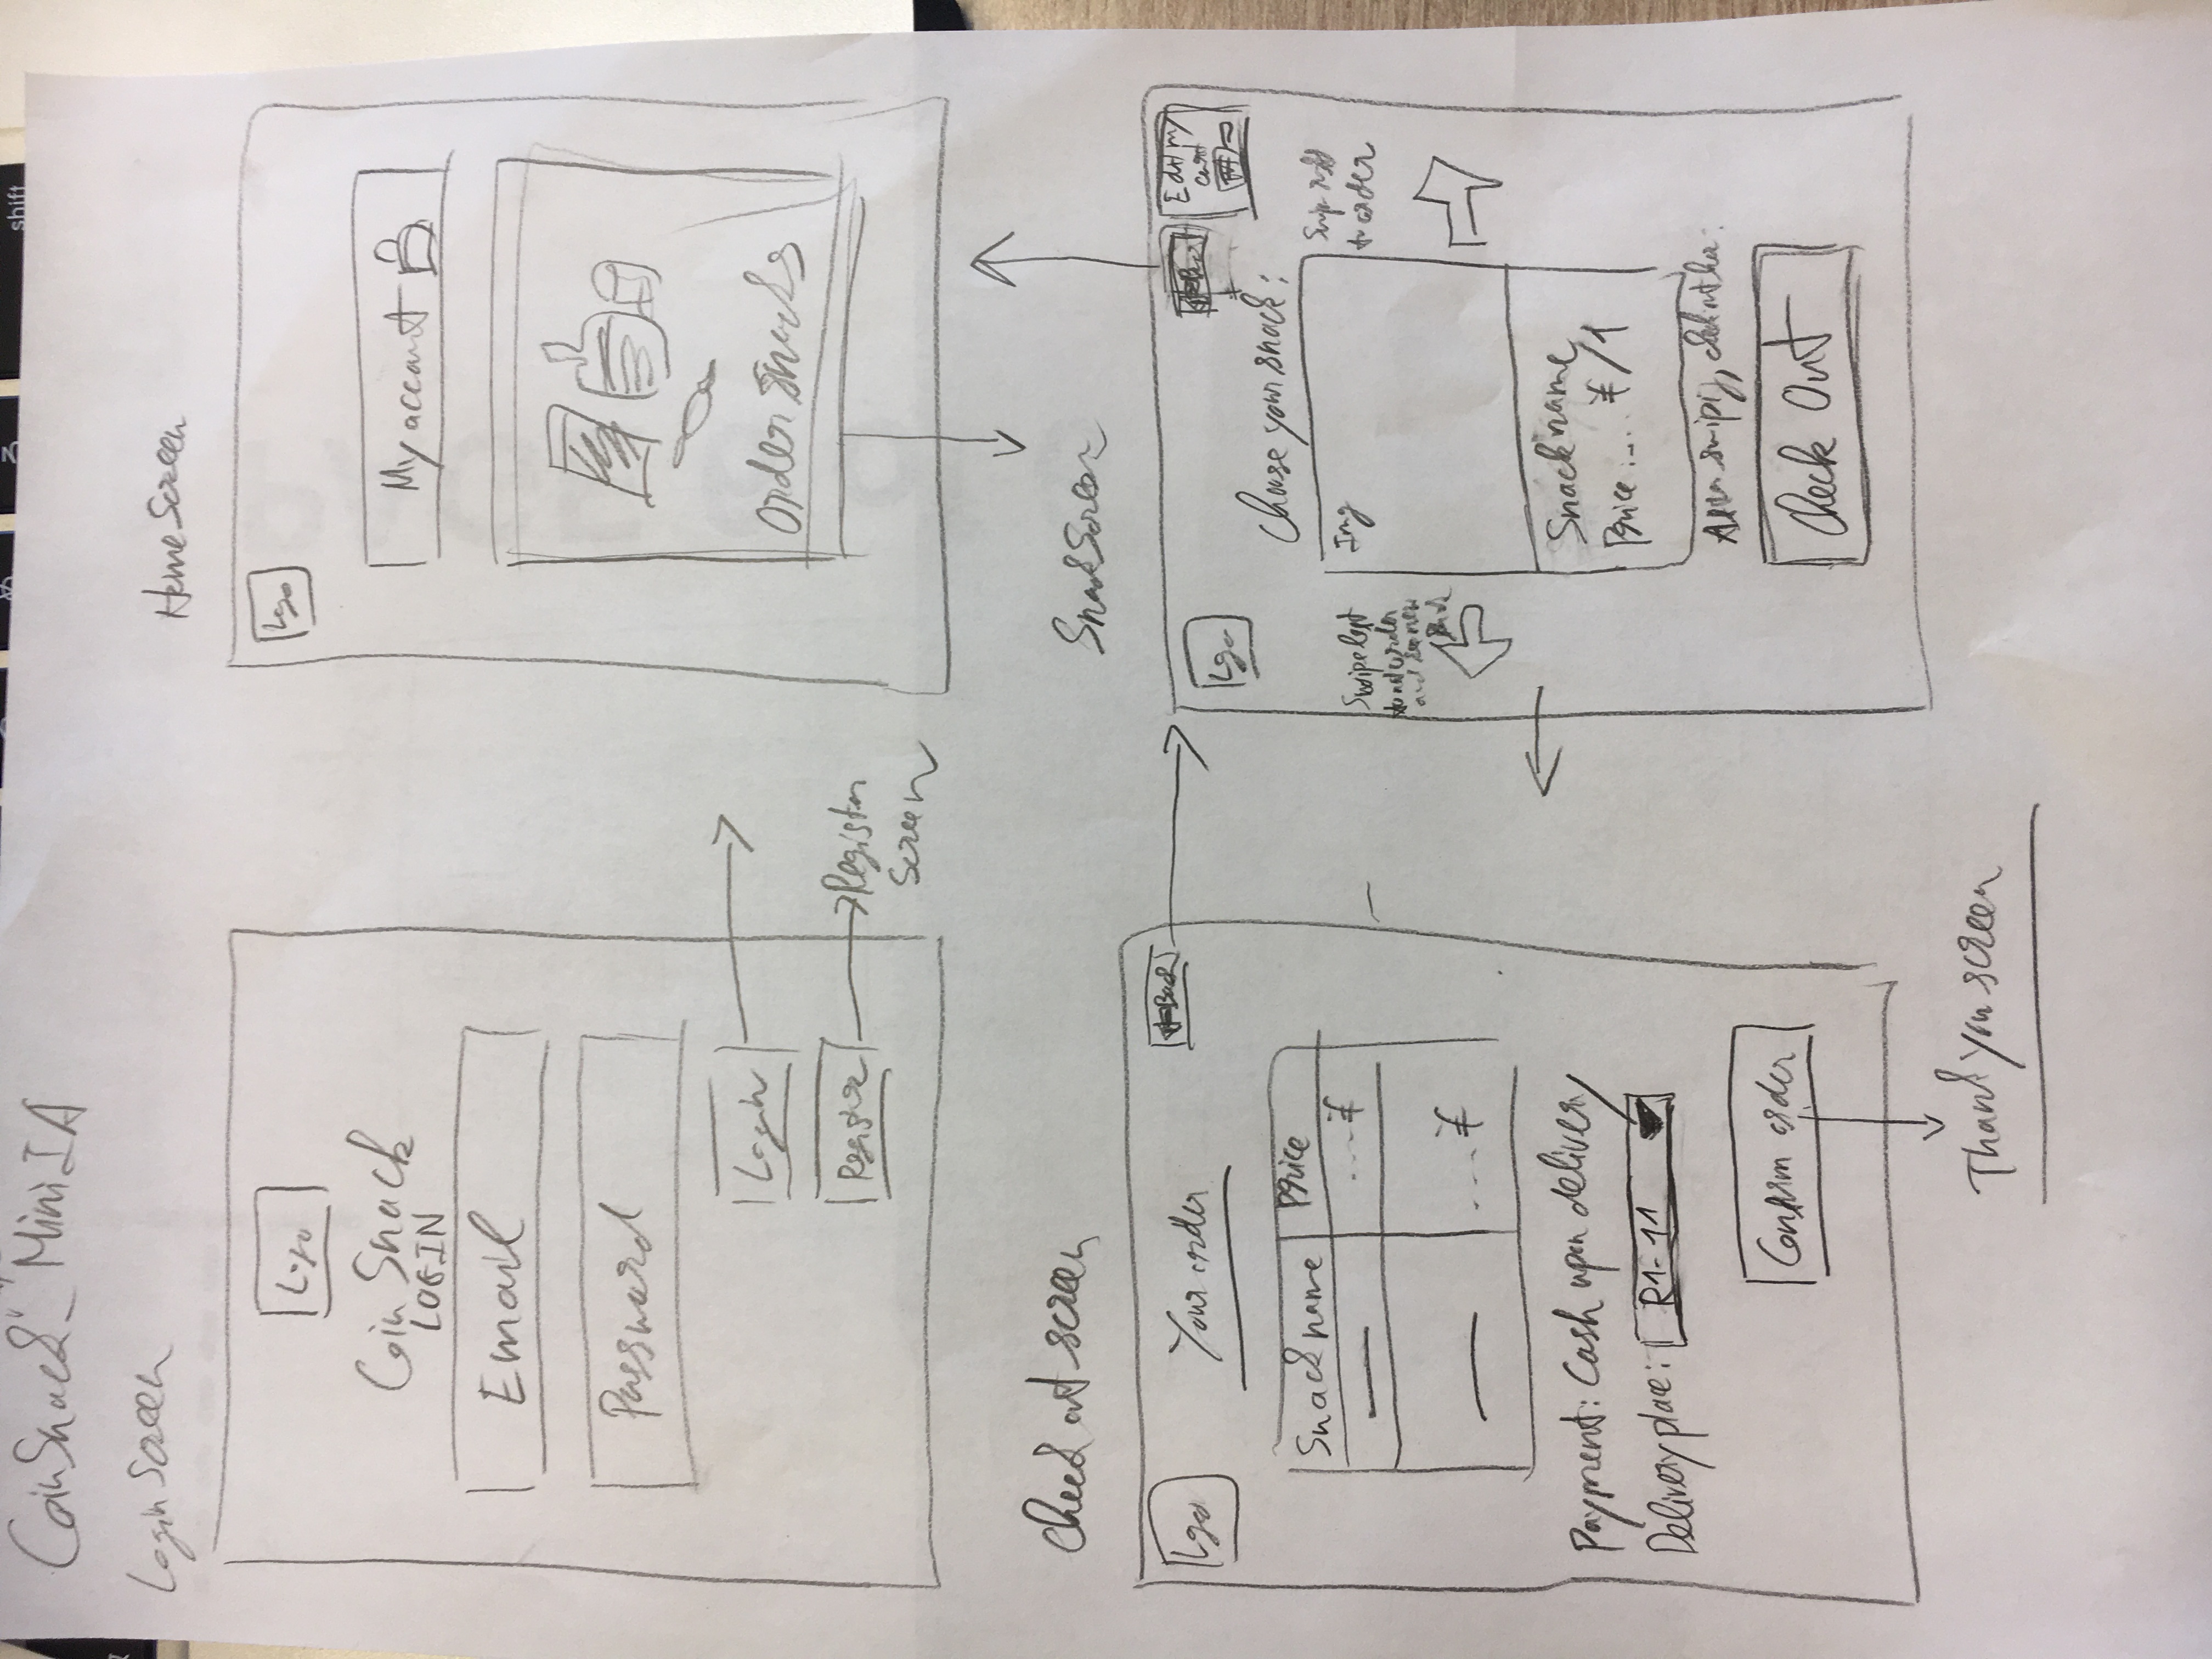 shift
CoinSnack_ Mini IA
Login Screen
Logo
Coin Snack
LOGIN
Email
Password
Login
Register
Register
Screen
Home Screen
Logo
My account
Order Snacks
Check out screen
Logo
Your order
←Back
Snack name
Price
...¥
....¥
Payment: Cash upon delivery
Delivery place: R1-11
Confirm order
Thank you screen
Snack Screen
Logo
←Back
Edit my
cart
Choose your snack:
Swipe left
to not order
and see new
Img
Swipe right
to order
Snack name
Price:.... ¥/1
After swipig, check out her:
Check Out